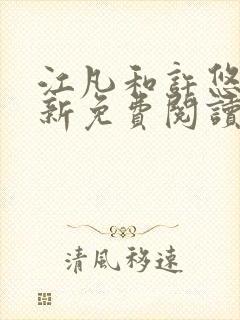 江凡和許悠
新免費閱讀
清風移速